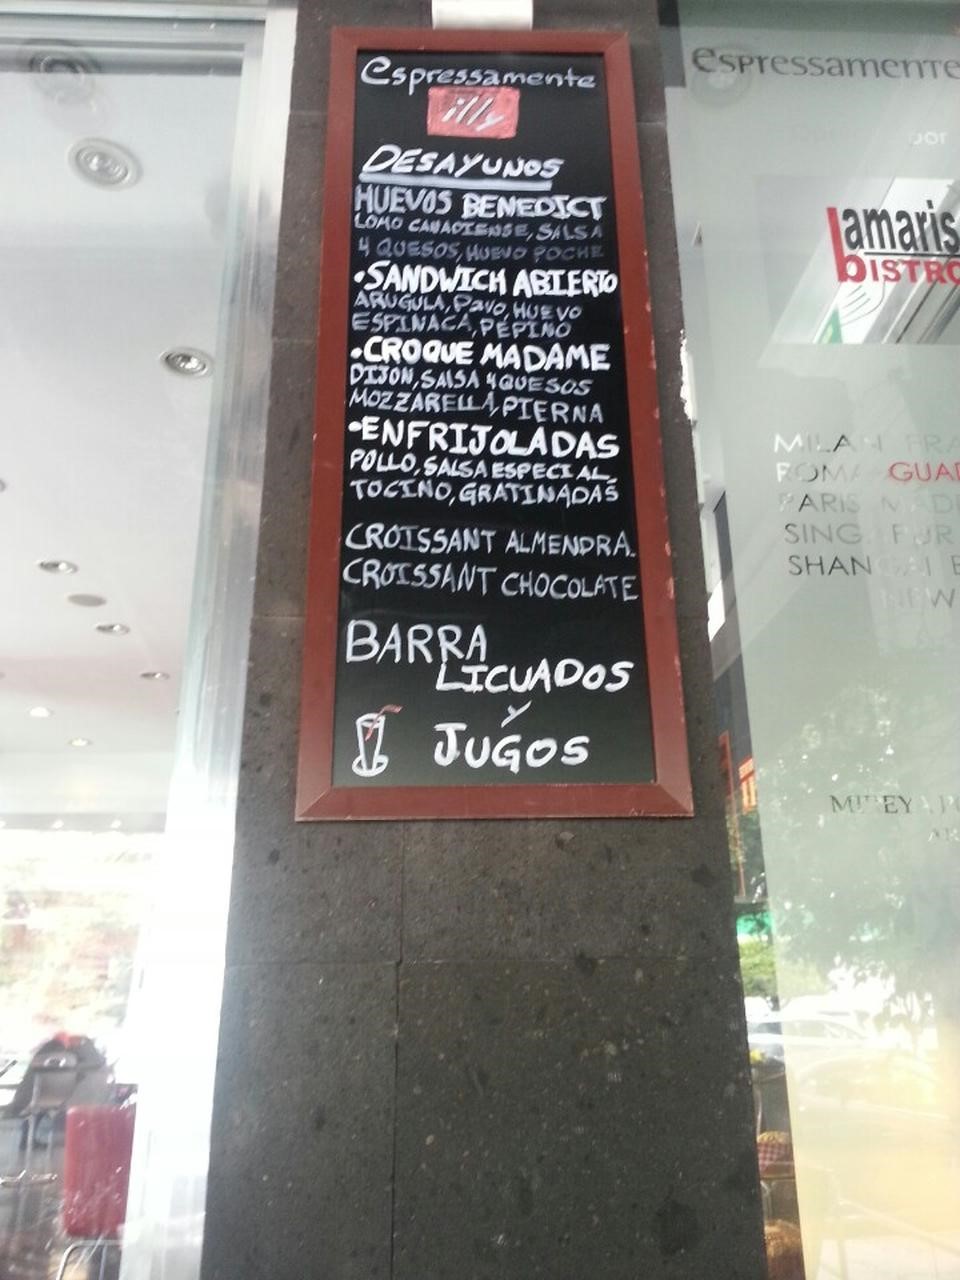 espressamente
illy
DESAYUNOS
HUEVOS BENEDICT
LOMO CANADIENSE, SALSA
4 QUESOS, HUEVO POCHE
•SANDWICH ABIERTO
ARUGULA, PAVO, HUEVO
ESPINACA, PEPINO
•CROQUE MADAME
DIJON, SALSA 4 QUESOS
MOZZARELLA, PIERNA
•ENFRIJOLADAS
POLLO, SALSA ESPECIAL
TOCINO, GRATINADAS
CROISSANT ALMENDRA.
CROISSANT CHOCOLATE
BARRA
LICUADOS
Y
JUGOS
espressamente
por
lamaris
bISTRO
MILAN FRA
ROMA GUAD
PARIS MADR
SHANGAI
NEW